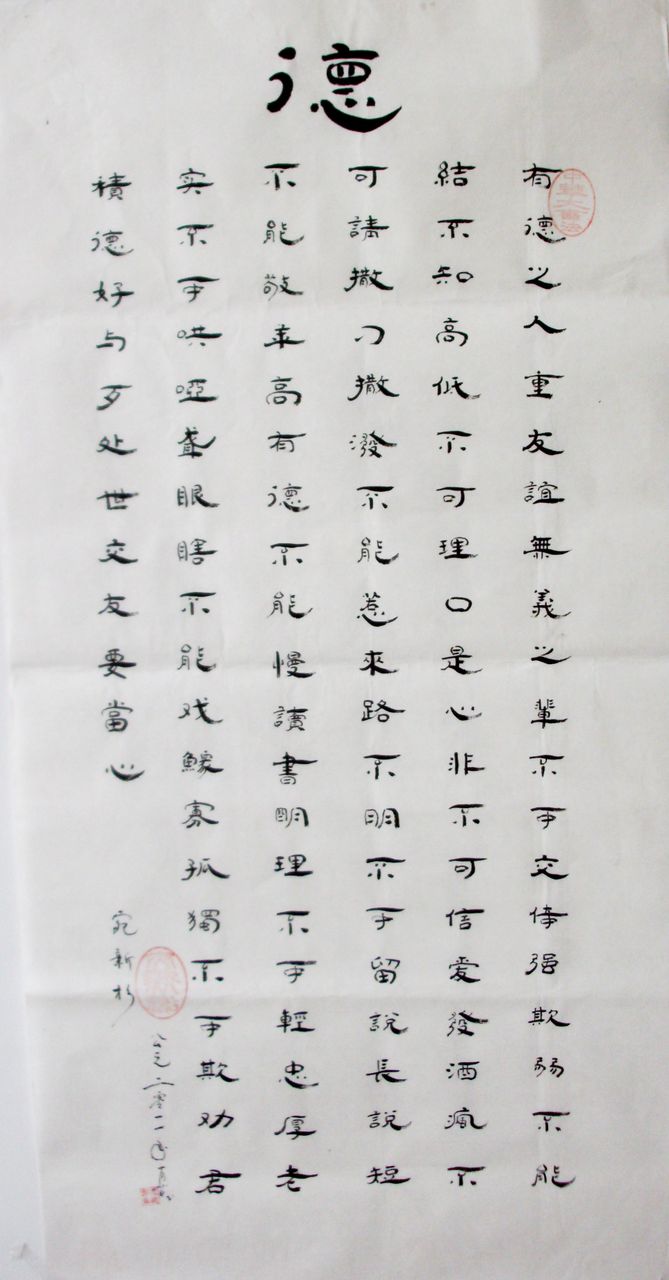 德
有德之人重友誼無義之輩不可交侍强欺弱不能
結不知高低不可理口是心非不可信爱發酒瘋不
可請撒刁撒潑不能惹來路不明不可留說長說短
不能敬年高有德不能慢讀書明理不可輕忠厚老
实不可哄啞聋眼瞎不能戏鰥寡孤獨不可欺劝君
積德好与歹处世交友要當心
宛新杉
公元二零一一年